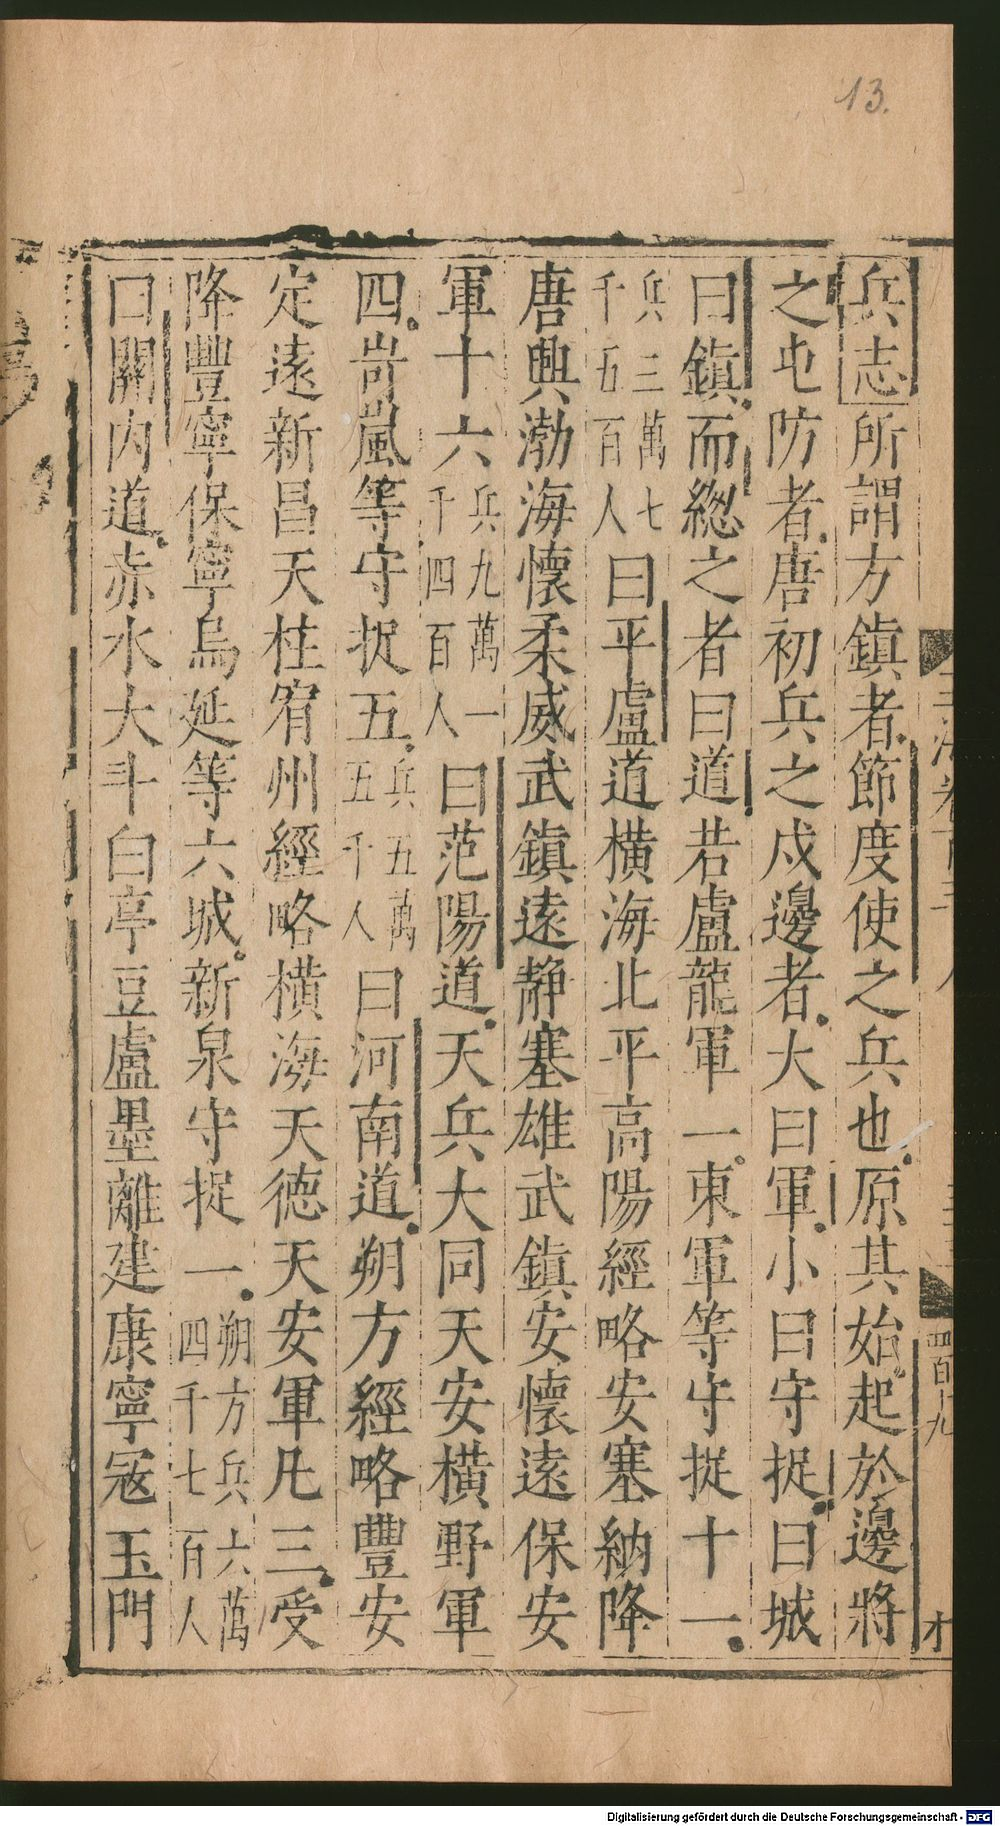 13.
兵志所謂方鎮者節度使之兵也原其始起於邊將
之屯防者唐初兵之戍邊者大曰軍小曰守捉曰城
曰鎮而緫之者曰道若盧龍軍一東軍等守捉十一
曰平盧道橫海北平高陽經略安塞納降
兵三萬七
千五百人
唐興渤海懷柔威武鎮遠靜塞雄武鎮安懷遠保安
軍十六
兵九萬一
千四百人
曰范陽道天兵大同天安橫野軍
四岢嵐等守捉五
兵五萬
五千人
曰河南道朔方經略豐安
定遠新昌天柱宥州經略橫海天德天安軍凡三受
降豐寧保寧烏延等六城新泉守捉一
朔方兵六萬
四千七百人
曰關內道赤水大斗白亭豆盧墨離建康寧寇玉門
四百十九
才
Digitalisierung gefördert durch die Deutsche Forschungsgemeinschaft - DFG